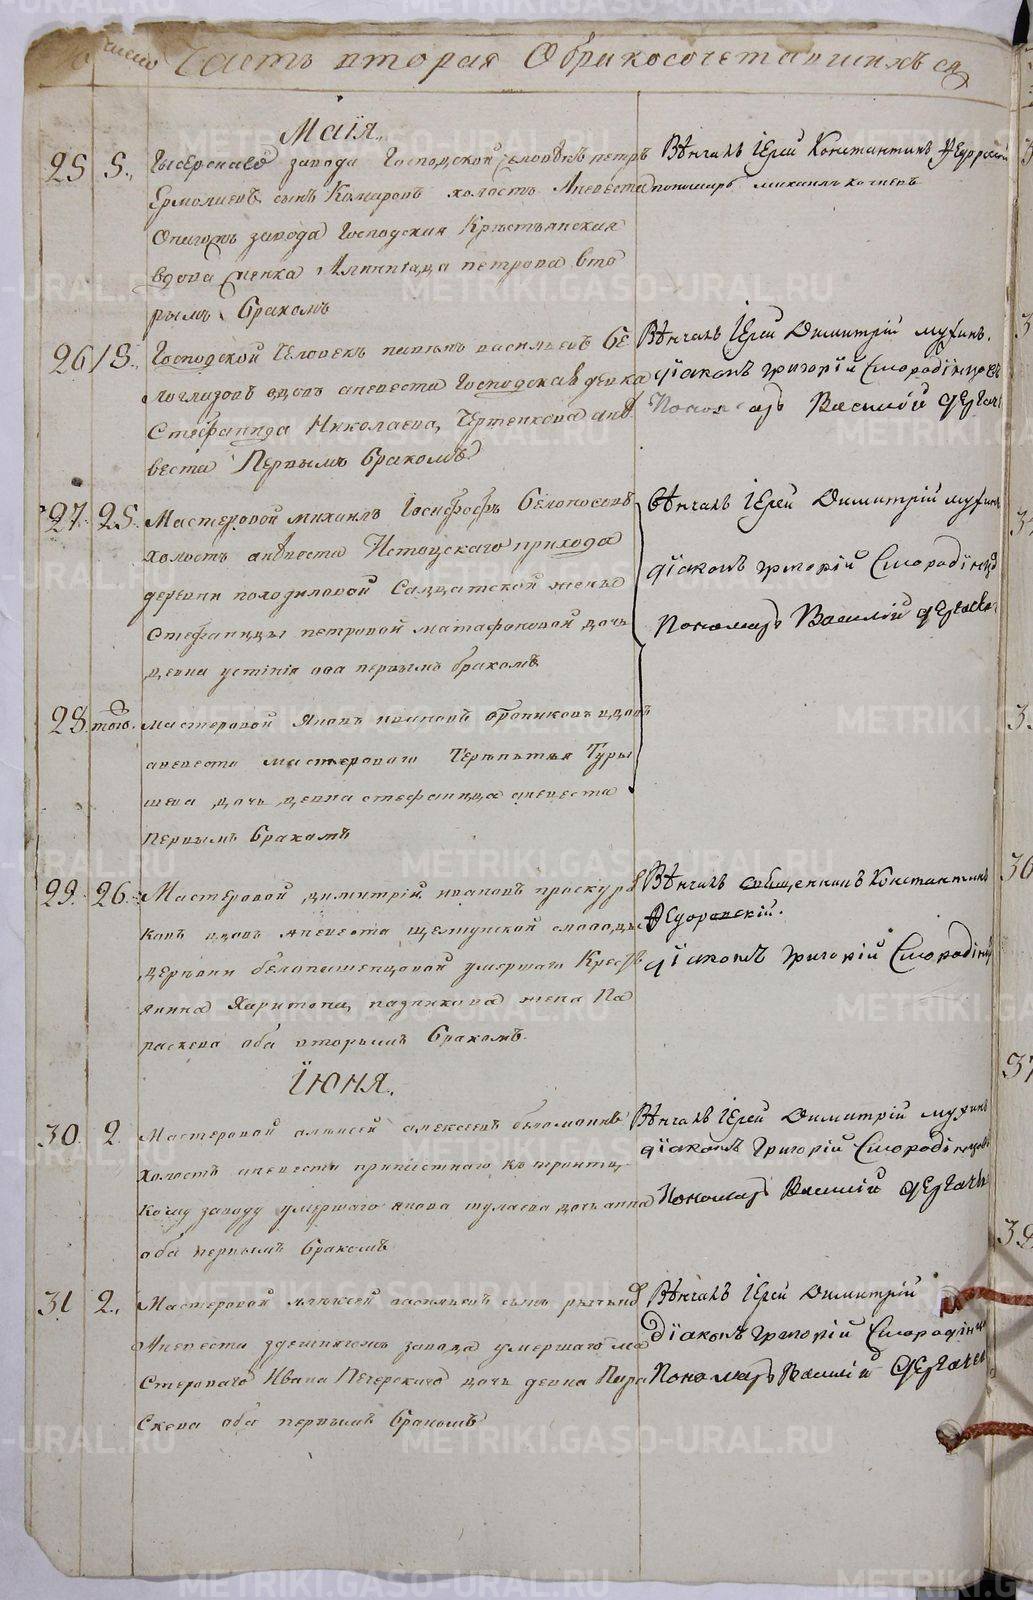 число Часть вторая Обракосочетавшихъся
Маїя.
25 5. Сысерскаго завода Господской человѣкъ петръ
Ермолаевъ сынъ Комаровъ холостъ Аневеста
завода Господская Крестьянская
вдова петрова вто
рымъ бракомъ
Вѣнчалъ Іерей Константинъ Федоровскій
пономарь михаилъ
26 18. Господской Человекъ васильевъ бе
логлазовъ вдовъ аневеста Господская девка
Стефанида Николаева, Чертенкова ане
веста Первымъ бракомъ
Вѣнчалъ Іерей Димитрій мухинъ.
діаконъ григорій Смородинцовъ
Пономарь Василий
27. 25. Мастеровой михаилъ Іосифовъ белоносовъ
холостъ аневеста Истоцскаго прихода
деревни походиловой Салдатской жены
Стефаниды петровой матафоновой дочь
девка устинія оба первымъ бракомъ
вѣнчалъ Іерей Димитрій мухинъ
діаконъ григорій Смородинцо
Пономарь Василий
28. того. мастеровой Яковъ ивановъ вдовъ
аневеста мастероваго Терентья Туры
шева дочь девка стефанида аневеста
первымъ бракомъ
29. 26. Мастеровой димитрій ивановъ проскуря
ковъ вдовъ аневеста щелкунской слободы
деревни умершаго Крестъ
янина Харитона жена Па
раскева оба вторымъ бракомъ.
Вѣнчалъ священникъ Константинъ
Федоровскій.
діаконъ григорій Смородинц
Їюня.
30. 2. Мастеровой алексей алексеевъ
холостъ аневеста к троитц
кому заводу умершаго якова шулаева дочь анна
оба первымъ бракомъ
Вѣнчалъ Іерей Димитрій мухинъ
діаконъ Григорій Смородинцовъ
Пономарь Василий
31 2. Мастеровой алексей васильевъ сынъ
Аневеста здешняго завода умершаго ма
стероваго Ивана Печерскаго дочь девка Пара
скева оба первымъ бракомъ
Вѣнчалъ Іерей Димитрій
Діаконъ григорій Смородинц
Пономарь Василий
METRIKI.GASO-URAL.RU